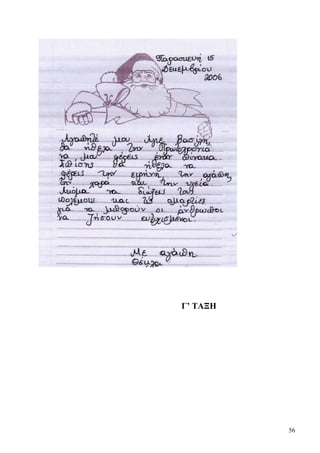 Παρασκευή 15
Δεκεμβρίου
2006
Αγαπητέ μου Άγιε Βασίλη
θα ήθελα την Πρωτοχρονιά
να μου φέρεις έναν πίνακα.
Επίσης θα ήθελα να
φέρεις την ειρήνη, την αγάπη,
την χαρά και την υγεία.
Ακόμα να διώξεις τους
πολέμους και τις αμαρτίες
για να μπορούν οι άνθρωποι
να ζήσουν ευτυχισμένοι.
Με αγάπη
Γ' ΤΑΞΗ
56